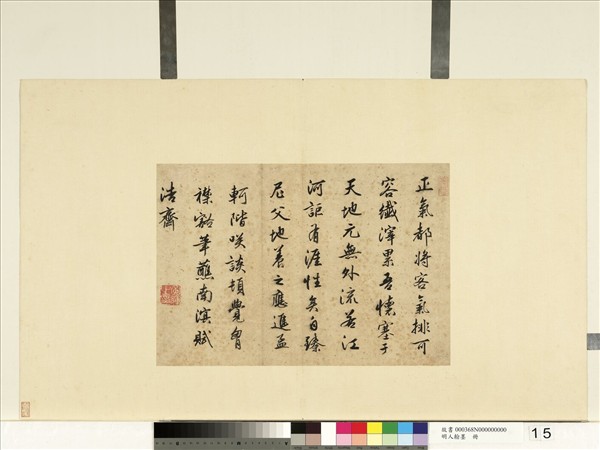 正氣都將客氣排可
容纖滓累吾懷塞于
天地元無外流若江
河詎有涯性矣自臻
尼父地養之應進孟
軻階咲談頓覺胷
襟豁筆蘸南溟賦
浩齋
故書 000368N000000000
明人翰墨 冊
15